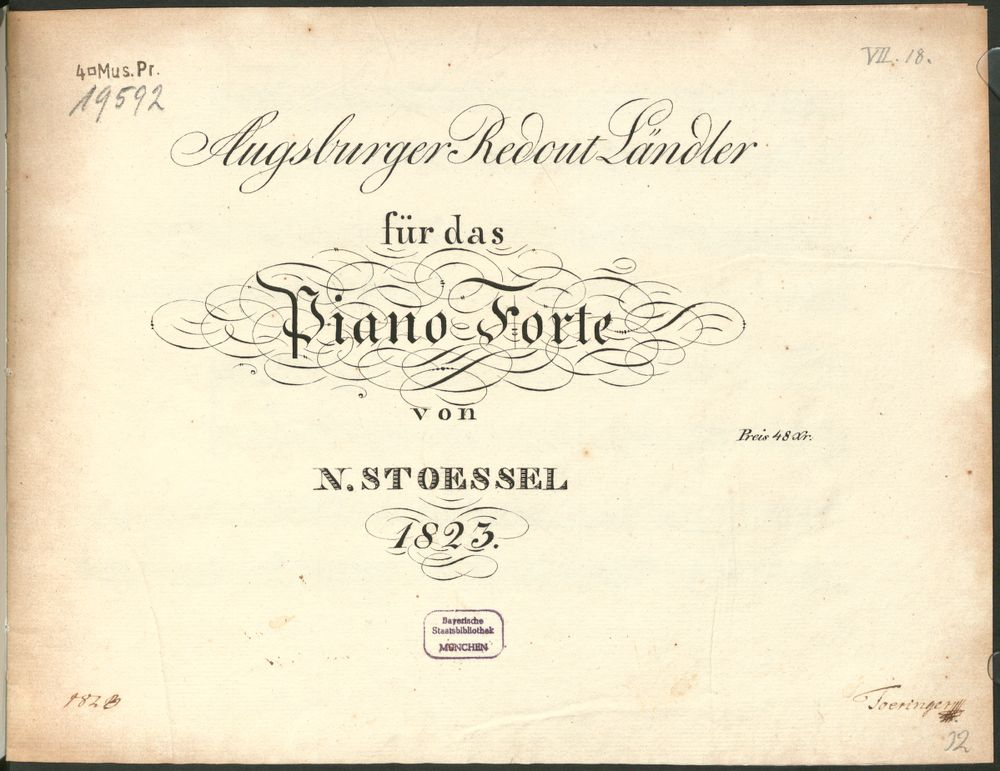 4° Mus. Pr.
19592
VII. 18.
Augsburger Redout Ländler
für das
Piano-Forte
von
Preis 48 Xr.
N. STOESSEL
1823.
Bayerische
Staatsbibliothek
MÜNCHEN
1823
Toeringer
32